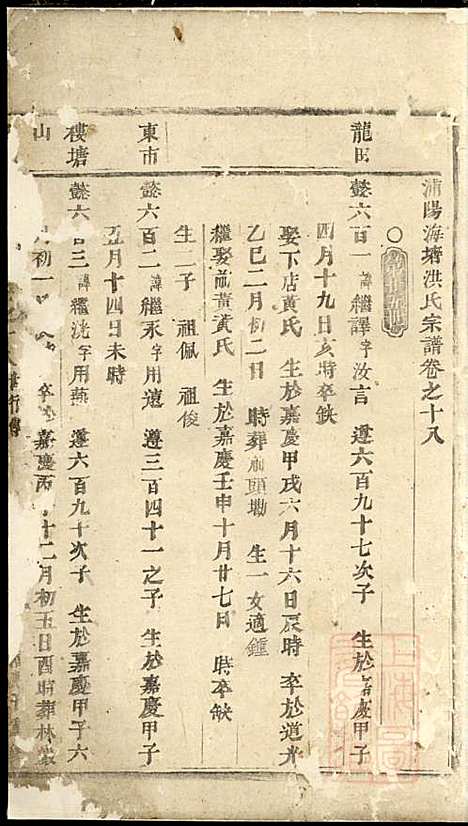 浦陽海塘洪氏宗譜卷之十八
龍田
懿六百一 諱繼譯字汝言 遵六百九十七次子 生於嘉慶甲子
四月十九日亥時卒缺
娶下店黃氏 生於嘉慶甲戌六月十六日辰時 卒於道光
乙巳二月初二日 時葬 頭塢 生一女適鍾
繼娶前黃黃氏 生於嘉慶壬申十月廿七日 時卒缺
生二子 祖佩 祖俊
東市
懿六百二 諱繼永字用遠 遵三百四十一之子 生於嘉慶甲子
五月十四日未時
樓塘
懿六百三 諱繼洸字用燕 遵六百九十次子 生於嘉慶甲子六
山
月初一 卒於嘉慶丙 十二月初五日酉時葬林
行傳